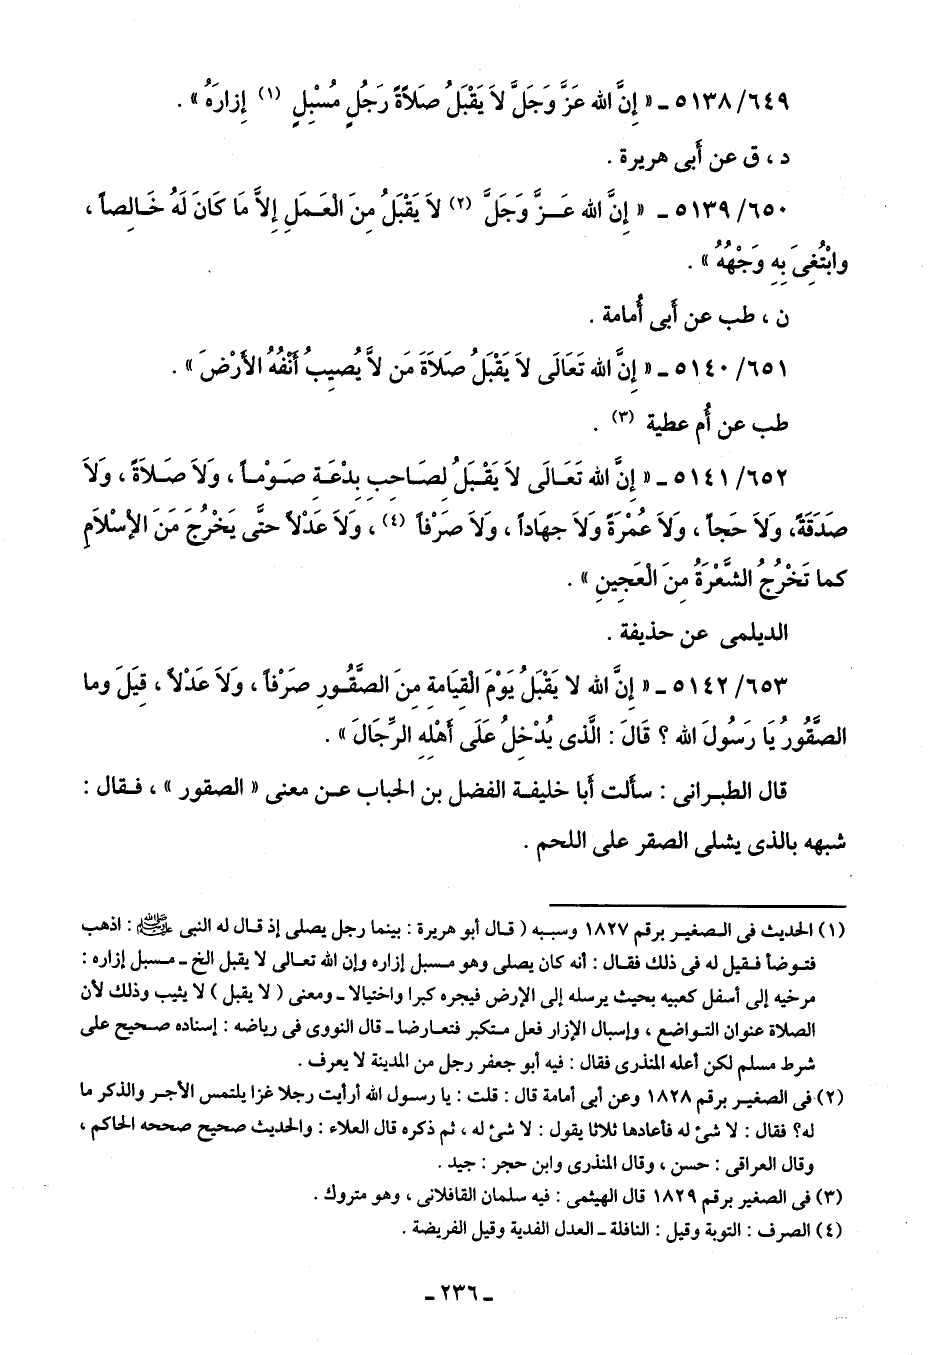 ٥١٣٨/٦٤٩ ـ « إِنَّ الله عَزَّ وَجَلَّ لاَ يَقْبَلُ صَلاَةً رَجُلٍ مُسْبِلٍ (١) إِزارَهُ » .
د ، ق عن أَبى هريرة .
٥١٣٩/٦٥٠ ـ « إِنَّ الله عَـزَّ وَجَلَّ (٢) لاَ يَقْبَلُ مِنَ الْعَـمَلِ إِلاَّ مَا كَانَ لَهُ خَـالِصاً ،
وابْتُغِىَ بِهِ وَجْهُهُ » .
ن ، طب عن أَبى أُمامة .
٥١٤٠/٦٥١ ـ « إِنَّ الله تَعَالَى لاَ يَقْبَلُ صَلاَةَ مَن لاَّ يُصِيبُ أَنْفُهُ الأَرْضَ » .
طب عن أُم عطية (٣) .
٥١٤١/٦٥٢ ـ « إِنَّ الله تَعَـالَى لاَ يَقْـبَلُ لِصَـاحِبِ بِدْعَـةٍ صَـوْمـاً ، وَلاَ صَـلاَةً ، وَلاَ
صَدَقَةً، وَلاَ حَجاً ، وَلاَ عُمْرَةً وَلاَ جِهَاداً ، وَلاَ صَرْفاً (٤) ، وَلاَ عَدْلاً حتَّى يَخْرُجَ مَنَ الإِسْلاَمِ
كما تَخْرُجُ الشَّعْرَةُ مِنَ الْعَجِينِ » .
الديلمى عن حذيفة .
٥١٤٢/٦٥٣ ـ « إِنَّ الله لا يَقْبَلُ يَوْمَ القِيَامةِ مِنَ الصَّقُـورِ صَرْفاً ، وَلاَ عَدْلاً ، قِيلَ وما
الصَّقُورُ يَا رَسُولَ الله ؟ قَالَ : الَّذى يُدْخِلُ عَلَى أَهْلِهِ الرِّجَالَ » .
قال الطبـرانى : سـألت أبا خليفـة الفضل بن الحباب عـن معنى « الصقور » ، فـقال :
شبهه بالذى يشلى الصقر على اللحم .
(١) الحديث فى الصغيـر برقم ١٨٢٧ وسببه ( قـال أبو هريرة : بينما رجل يصلى إذ قـال له النبى ﷺ : اذهب
فتـوضأ فـقيل له فى ذلك فقـال : أنه كان يصلى وهو مـسبل إزاره وإن الله تعـالى لا يقبل الخ ـ مـسبل إزاره :
مرخيه إلى أسفل كعبيه بحيث يرسله إلى الإرض فيجره كبرا واختيالا ـ ومعنى ( لا يقبل ) لا يثيب وذلك لأن
الصلاة عنوان التـواضع ، وإسبال الإزار فعل متكبر فتعارضا ـ قال النووى فى رياضه : إسناده صحيح على
شرط مسلم لكن أعله المنذرى فقال : فيه أبو جعفر رجل من المدينة لا يعرف .
(٢) فى الصغيـر برقم ١٨٢٨ وعن أبى أمامة قال : قلت : يا رسـول الله أرأيت رجلا غزا يلتمس الأجـر والذكر ما
له؟ فقال : لا شئ له فأعادها ثلاثا يقول : لا شئ له ، ثم ذكره قال العلاء : والحديث صحيح صححه الحاكم ،
وقال العراقى : حسن ، وقال المنذرى وابن حجر : جيد .
(٣) فى الصغير برقم ١٨٢٩ قال الهيثمى : فيه سلمان القافلانى ، وهو متروك .
(٤) الصرف : التوبة وقيل : النافلة ـ العدل الفدية وقيل الفريضة .
ـ ٢٣٦ ـ